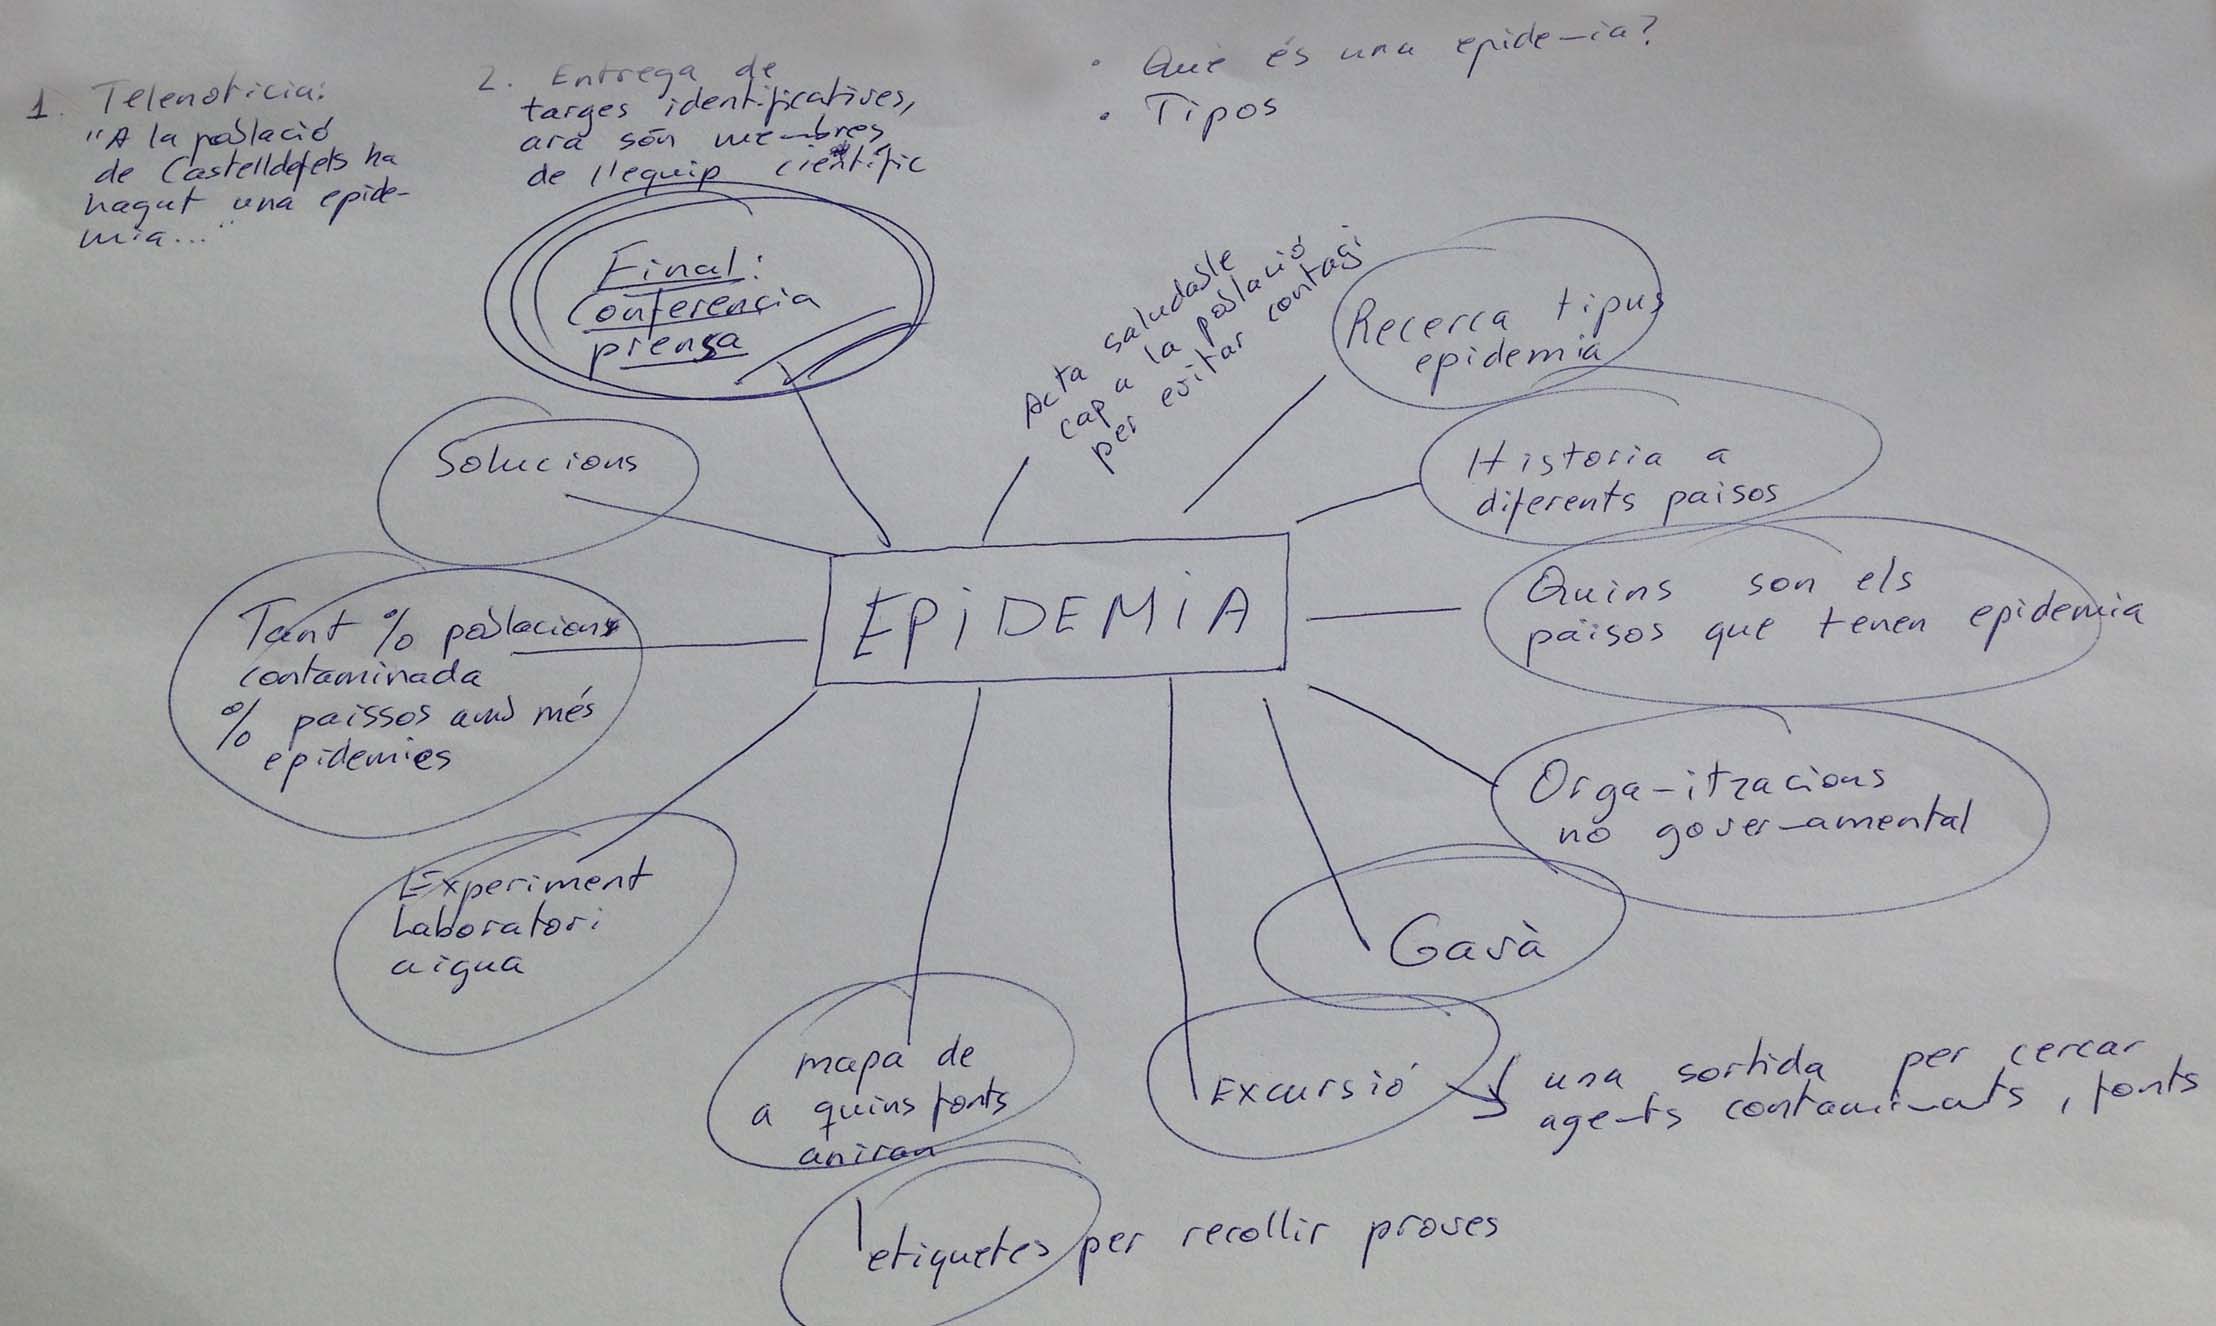 1. Telenoticia:
"A la població
de Castelldefels ha
hagut una epide-
mia..."
2. Entrega de
targes identificatives,
ara són membres
de l'equip científic
· Què és una epidemia?
· Tipos
Final:
Conferencia
prensa
Acta saludable
cap a la població
per evitar contagi
Recerca tipus
epidemia
Historia a
diferents paisos
Quins son els
països que tenen epidemia
Organitzacions
no governamental
Gavà
Excursió
una sortida per cercar
agents contaminants, fonts
mapa de
a quins fonts
aniran
etiquetes per recollir proves
Experiment
Laboratori
aigua
Tant % poblacions
contaminada
% paissos amb més
epidemies
Solucions
EPIDEMIA